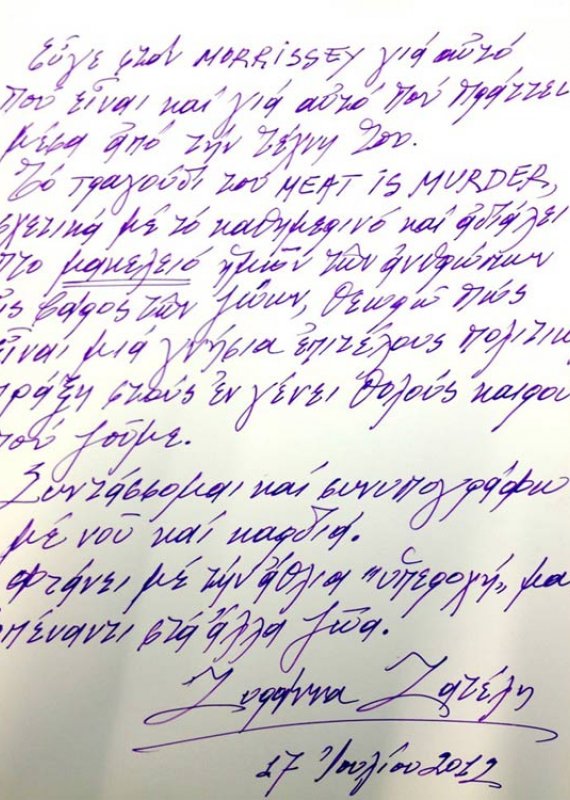 Εὖγε στον MORRISSEY γιά αὐτό
πού εἶναι καί γιά αὐτό πού πράττει
μέσα ἀπό τήν τέχνη του.
Τό τραγούδι του MEAT IS MURDER,
σχετικά μέ τό καθημερινό καί ἀδιάλει
πτο μακελειό ἡμῶν τῶν ἀνθρώπων
εἰς βάρος τῶν ζώων, θεωρῶ πώς
εἶναι μιά γνήσια ἐπιτέλους πολιτικ
πράξη στούς ἐν γένει θολούς καιρού
πού ζοῦμε.
Συντάσσομαι καί συνυπογράφω
μέ νοῦ καί καρδιά.
Φτάνει μέ τήν ἄθλια "ὑπεροχή" μα
ἀπέναντι στά ἄλλα ζῶα.
Ζυράννα Ζατέλη
17 Ἰουλίου 2012